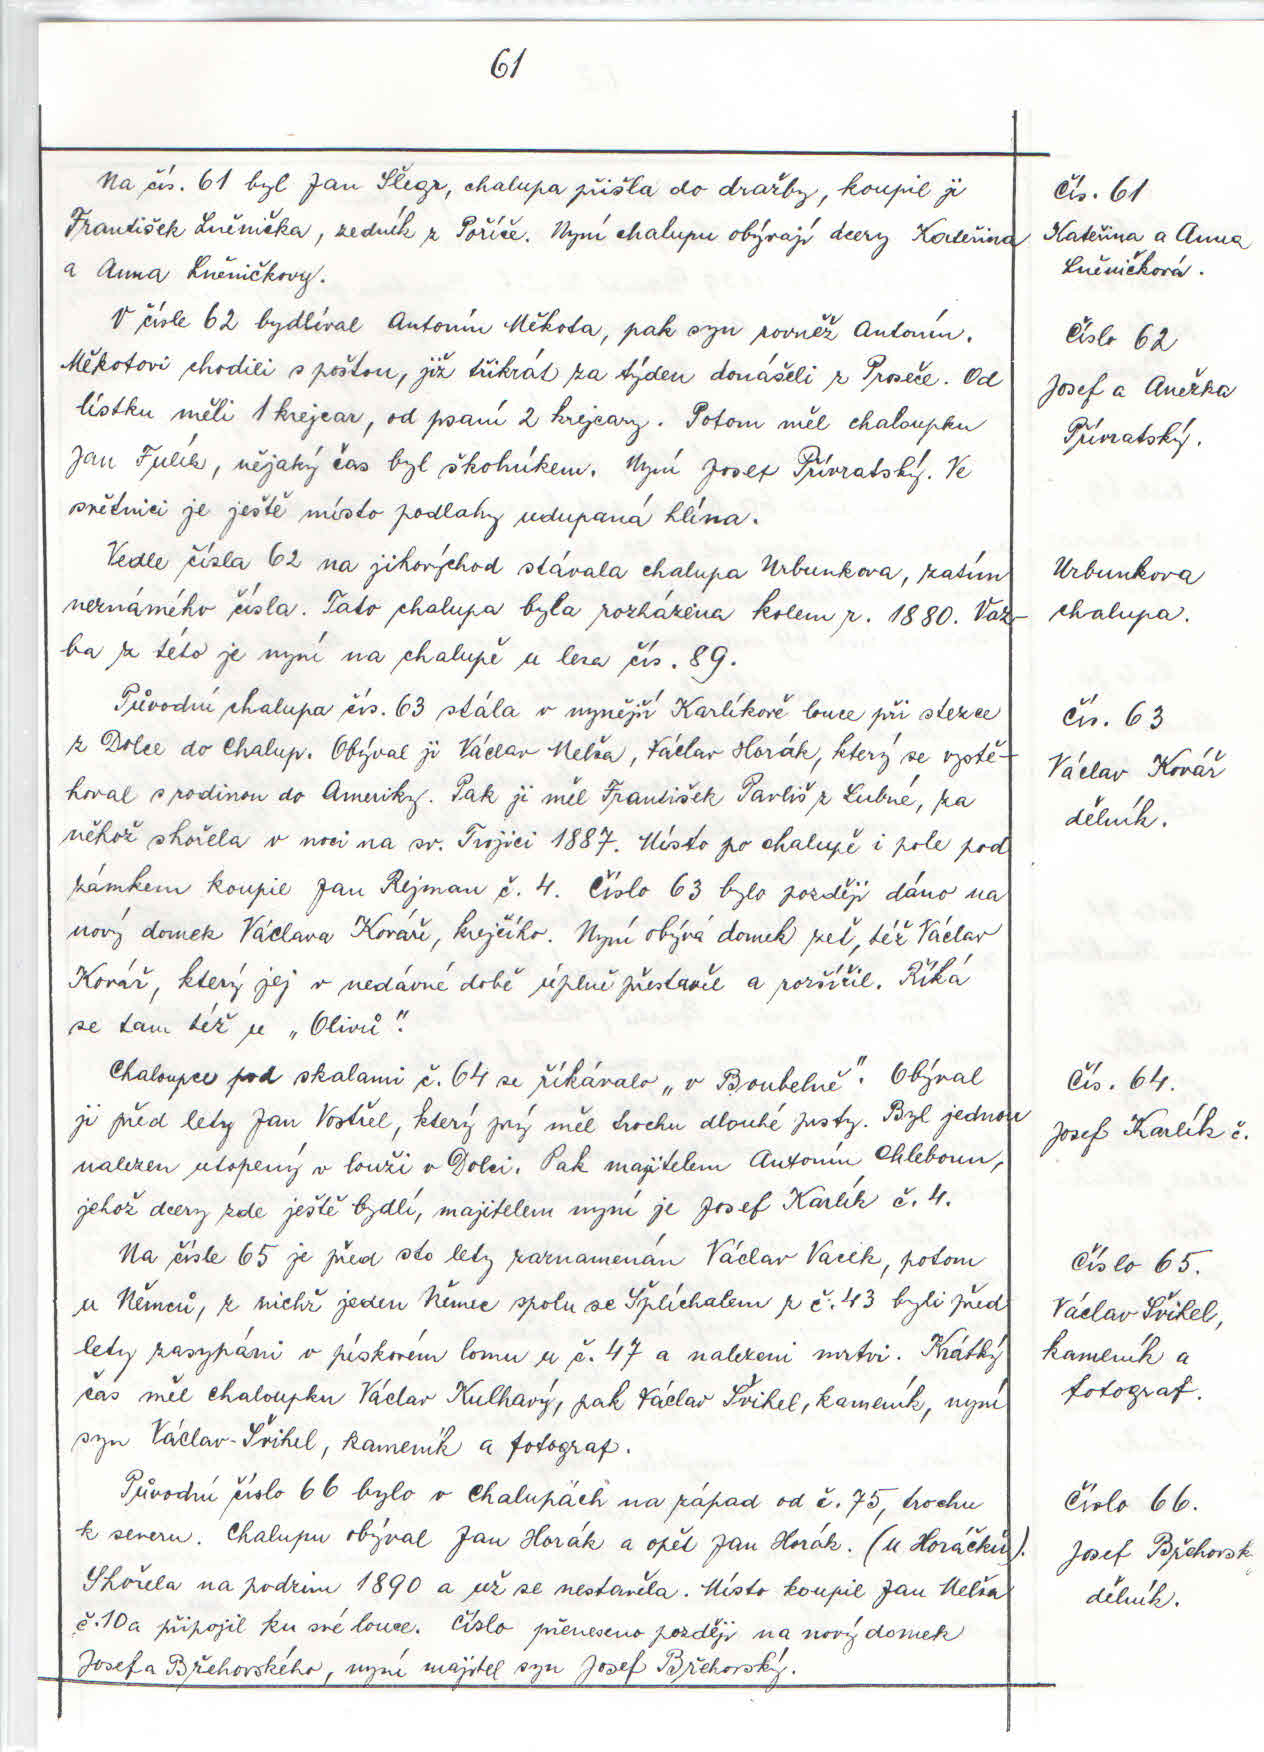 61
Na čís. 61 byl Jan Šlegr, chalupa přišla do dražby, koupil ji
František Lněnička, zedník z Poříče. Nyní chalupu obývají dcery Kateřina
a Anna Lněničkovy.
V čísle 62 bydlíval Antonín Měkota, pak syn rovněž Antonín.
Měkotovi chodili s poštou, již třikrát za týden donášeli z Proseče. Od
lístku měli 1 krejcar, od psaní 2 krejcary. Potom měl chaloupku
Jan Fulík, nějaký čas byl školníkem. Nyní Josef Přívratský. Ve
světnici je ještě místo podlahy udupaná hlína.
Vedle čísla 62 na jihovýchod stávala chalupa Urbunkova, zatím
neznámého čísla. Tato chalupa byla rozházena kolem r. 1880. Vaz-
ba z této je nyní na chalupě u lesa čís. 89.
Původní chalupa čís. 63 stála v nynější Karlíkově louce při stezce
z Dolce do Chalup. Obýval ji Václav Melša, Václav Horák, který se vystě-
hoval s rodinou do Ameriky. Pak ji měl František Pavliš z Lubné, za
něhož shořela v noci na sv. Trojici 1887. Místo po chalupě i pole pod
zámkem koupil Jan Rejman č. 4. Číslo 63 bylo později dáno na
nový domek Václava Kováře, krejčího. Nyní obývá domek zeť, též Václav
Kovář, který jej v nedávné době úplně přestavěl a rozšířil. Říká
se tam též u „Olivů".
Chaloupce pod skalami č. 64 se říkávalo „v Boubelně". Obýval
ji před lety Jan Vostřel, který prý měl trochu dlouhé prsty. Byl jednou
nalezen utopený v louži v Dolci. Pak majitelem Antonín Chleboun,
jehož dcery zde ještě bydlí, majitelem nyní je Josef Karlík č. 4.
Na čísle 65 je před sto lety zaznamenán Václav Vacek, potom
u Němců, z nichž jeden Němec spolu se Šplíchalem z č. 43 byli před
lety zasypáni v pískovém lomu u č. 47 a nalezeni mrtvi. Krátký
čas měl chaloupku Václav Kulhavý, pak Václav Švihel, kameník, nyní
syn Václav Švihel, kameník a fotograf.
Původní číslo 66 bylo v Chalupách na západ od č. 75, trochu
k severu. Chalupu obýval Jan Horák a opět Jan Horák. (u Horáčků).
Shořela na podzim 1890 a už se nestavěla. Místo koupil Jan Melša
č. 10 a připojil ku své louce. Číslo přeneseno později na nový domek
Josefa Břehovského, nyní majitel syn Josef Břehovský.
Čís. 61
Kateřina a Anna
Lněničková.
Číslo 62
Josef a Anežka
Přívratský.
Urbunkova
chalupa.
Čís. 63
Václav Kovář
dělník.
Čís. 64.
Josef Karlík č.
Číslo 65.
Václav Švihel,
kameník a
fotograf.
Číslo 66.
Josef Břehovsk
dělník.